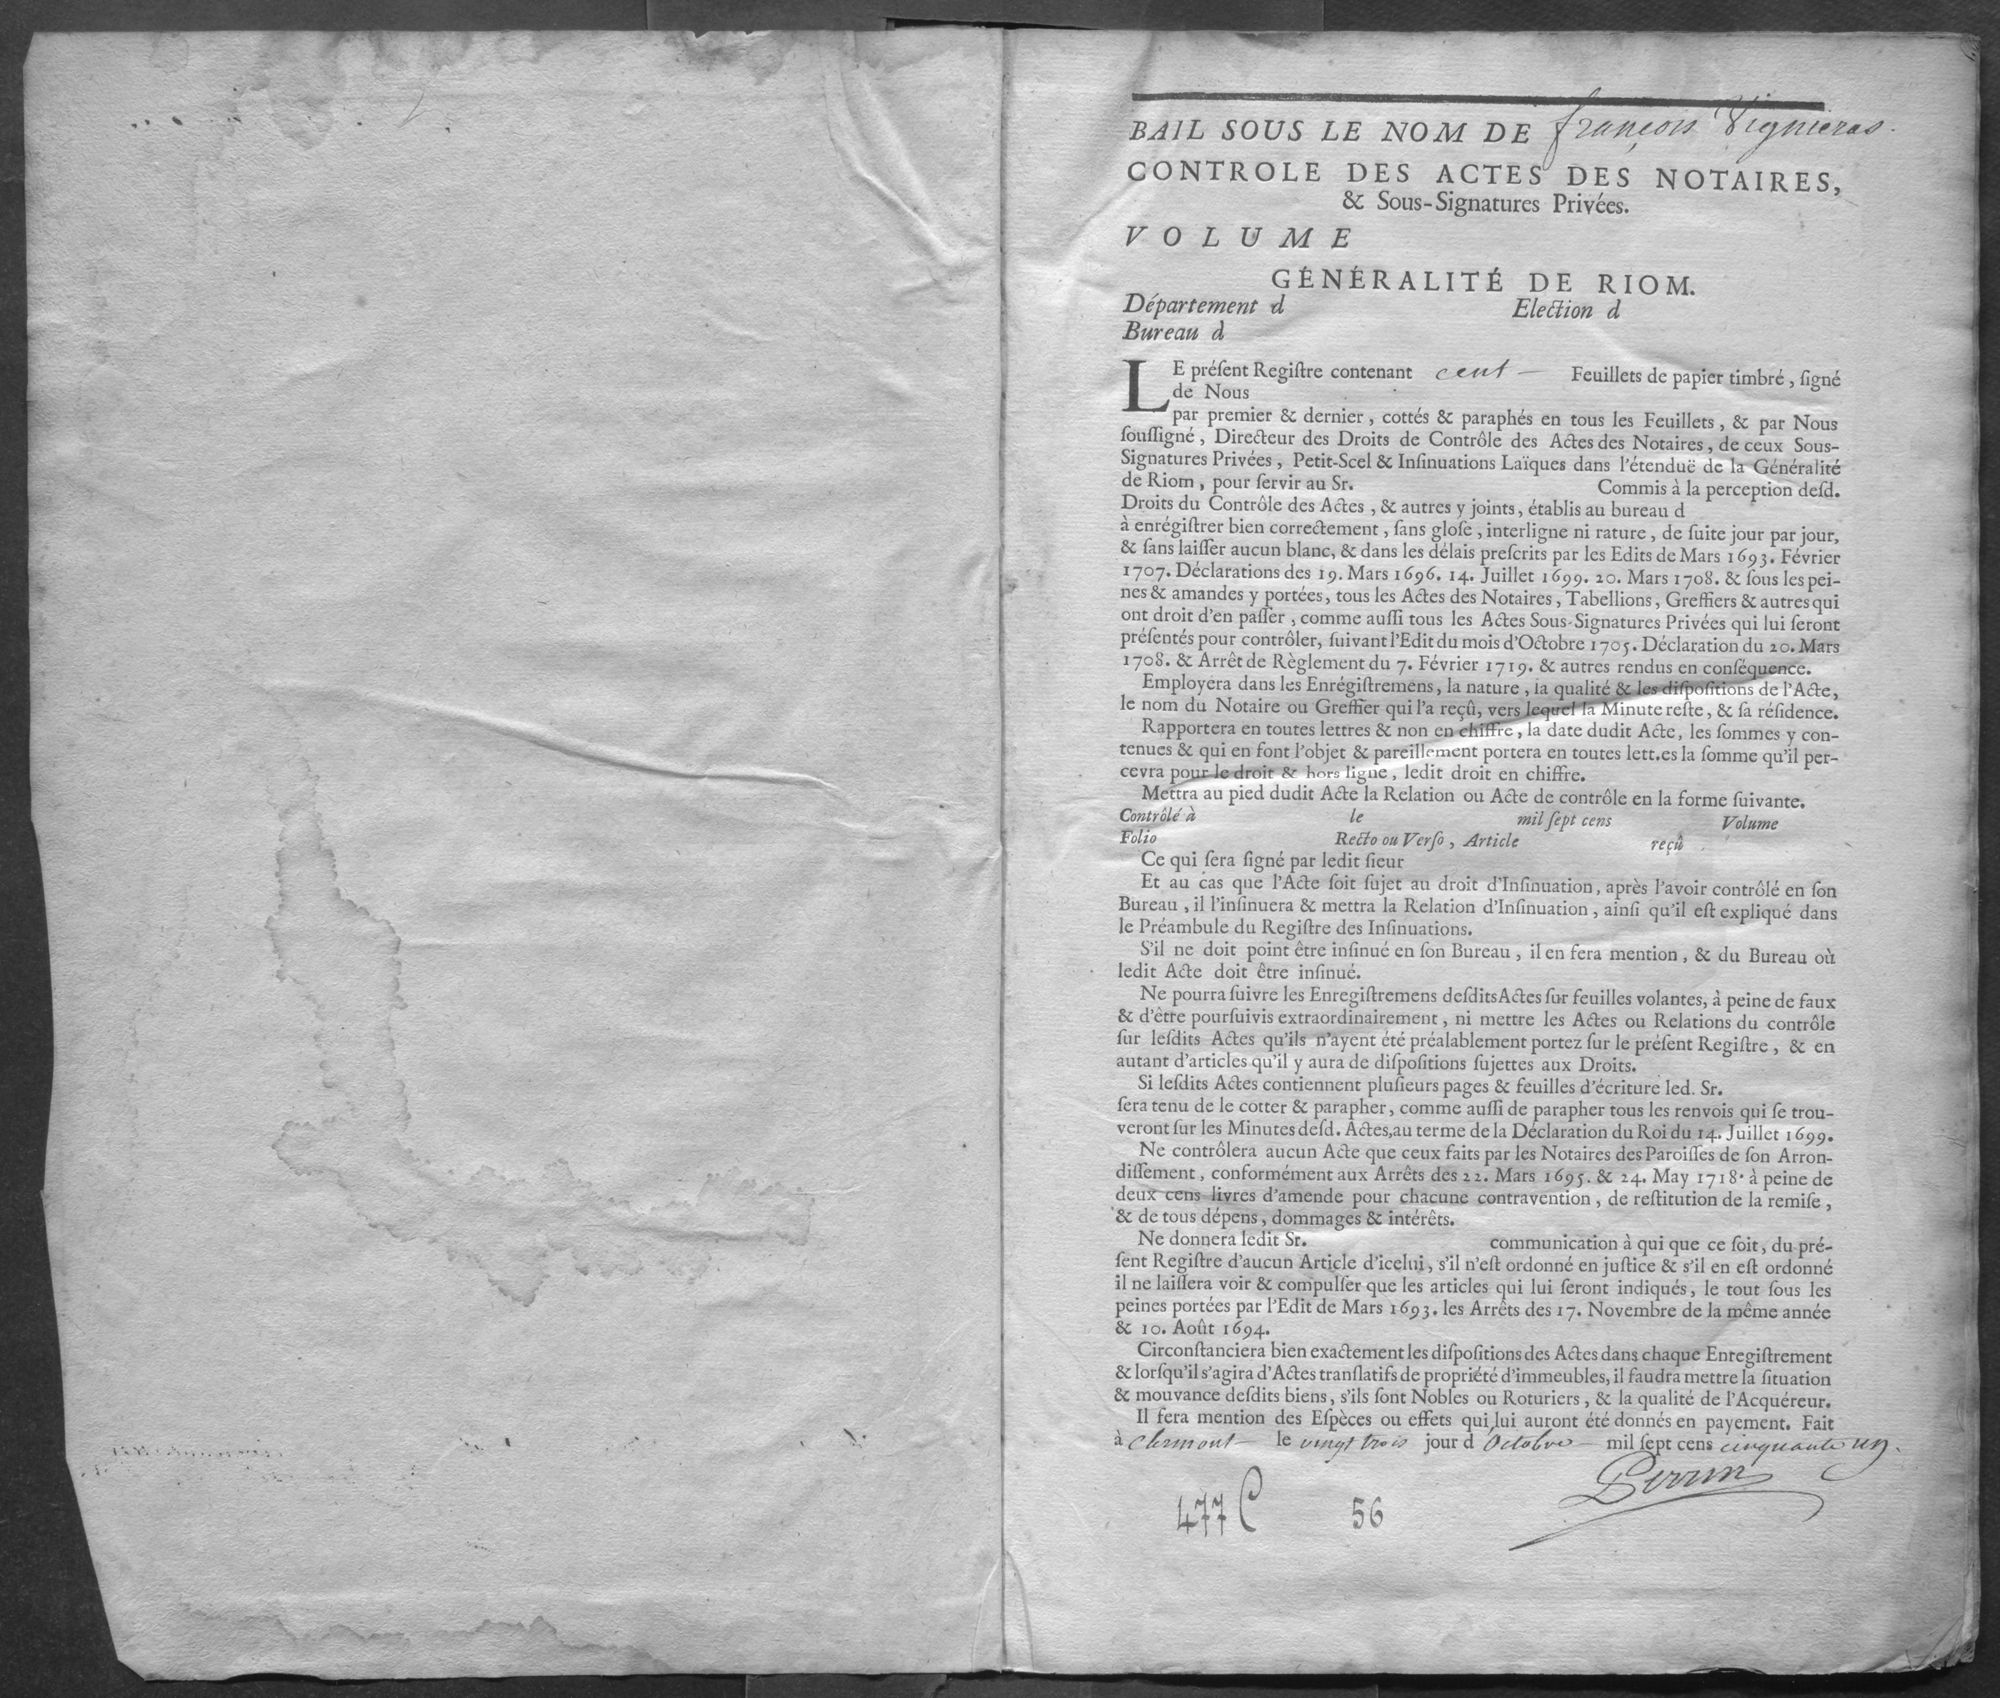 BAIL SOUS LE NOM DE françois Vignieras.
CONTROLE DES ACTES DES NOTAIRES,
& Sous-Signatures Privées.
VOLUME
GÉNÉRALITÉ DE RIOM.
Département d Election d
Bureau d
LE préſent Regiſtre contenant cent Feuillets de papier timbré, ſigné
de Nous
par premier & dernier, cottés & paraphés en tous les Feuillets, & par Nous
ſouſſigné, Directeur des Droits de Contrôle des Actes des Notaires, de ceux Sous-
Signatures Privées, Petit-Scel & Inſinuations Laïques dans l'étenduë de la Généralité
de Riom, pour ſervir au Sr. Commis à la perception deſd.
Droits du Contrôle des Actes, & autres y joints, établis au bureau d
à enrégiſtrer bien correctement, ſans gloſe, interligne ni rature, de ſuite jour par jour,
& ſans laiſſer aucun blanc, & dans les délais preſcrits par les Edits de Mars 1693. Février
1707. Déclarations des 19. Mars 1696. 14. Juillet 1699. 20. Mars 1708. & ſous les pei-
nes & amandes y portées, tous les Actes des Notaires, Tabellions, Greffiers & autres qui
ont droit d'en paſſer, comme auſſi tous les Actes Sous-Signatures Privées qui lui ſeront
préſentés pour contrôler, ſuivant l'Edit du mois d'Octobre 1705. Déclaration du 20. Mars
1708. & Arrêt de Règlement du 7. Février 1719. & autres rendus en conſéquence.
Employera dans les Enrégiſtremens, la nature, la qualité & les diſpoſitions de l'Acte,
le nom du Notaire ou Greffier qui l'a reçû, vers lequel la Minute reſte, & ſa réſidence.
Rapportera en toutes lettres & non en chiffre, la date dudit Acte, les ſommes y con-
tenues & qui en font l'objet & pareillement portera en toutes lett.es la ſomme qu'il per-
cevra pour le droit & hors ligne, ledit droit en chiffre.
Mettra au pied dudit Acte la Relation ou Acte de contrôle en la forme ſuivante.
Contrôlé à le mil ſept cens Volume
Folio Recto ou Verſo, Article reçû
Ce qui ſera ſigné par ledit ſieur
Et au cas que l'Acte ſoit ſujet au droit d'Inſinuation, après l'avoir contrôlé en ſon
Bureau, il l'inſinuera & mettra la Relation d'Inſinuation, ainſi qu'il eſt expliqué dans
le Préambule du Regiſtre des Inſinuations.
S'il ne doit point être inſinué en ſon Bureau, il en fera mention, & du Bureau où
ledit Acte doit être inſinué.
Ne pourra ſuivre les Enregiſtremens deſdits Actes ſur feuilles volantes, à peine de faux
& d'être pourſuivis extraordinairement, ni mettre les Actes ou Relations du contrôle
ſur leſdits Actes qu'ils n'ayent été préalablement portez ſur le préſent Regiſtre, & en
autant d'articles qu'il y aura de diſpoſitions ſujettes aux Droits.
Si leſdits Actes contiennent pluſieurs pages & feuilles d'écriture led. Sr.
ſera tenu de le cotter & parapher, comme auſſi de parapher tous les renvois qui ſe trou-
veront ſur les Minutes deſd. Actes, au terme de la Déclaration du Roi du 14. Juillet 1699.
Ne contrôlera aucun Acte que ceux faits par les Notaires des Paroiſſes de ſon Arron-
diſſement, conformément aux Arrêts des 22. Mars 1695. & 24. May 1718. à peine de
deux cens livres d'amende pour chacune contravention, de reſtitution de la remiſe,
& de tous dépens, dommages & intérêts.
Ne donnera ledit Sr. communication à qui que ce ſoit, du pré-
ſent Regiſtre d'aucun Article d'icelui, s'il n'eſt ordonné en juſtice & s'il en eſt ordonné
il ne laiſſera voir & compulſer que les articles qui lui ſeront indiqués, le tout ſous les
peines portées par l'Edit de Mars 1693. les Arrêts des 17. Novembre de la même année
& 10. Août 1694.
Circonſtanciera bien exactement les diſpoſitions des Actes dans chaque Enregiſtrement
& lorſqu'il s'agira d'Actes tranſlatifs de propriété d'immeubles, il faudra mettre la ſituation
& mouvance deſdits biens, s'ils ſont Nobles ou Roturiers, & la qualité de l'Acquéreur.
Il fera mention des Eſpèces ou effets qui lui auront été donnés en payement. Fait
à Clermont le vingt trois jour d'Octobre mil ſept cens cinquante un.
Perrin
477 C 56